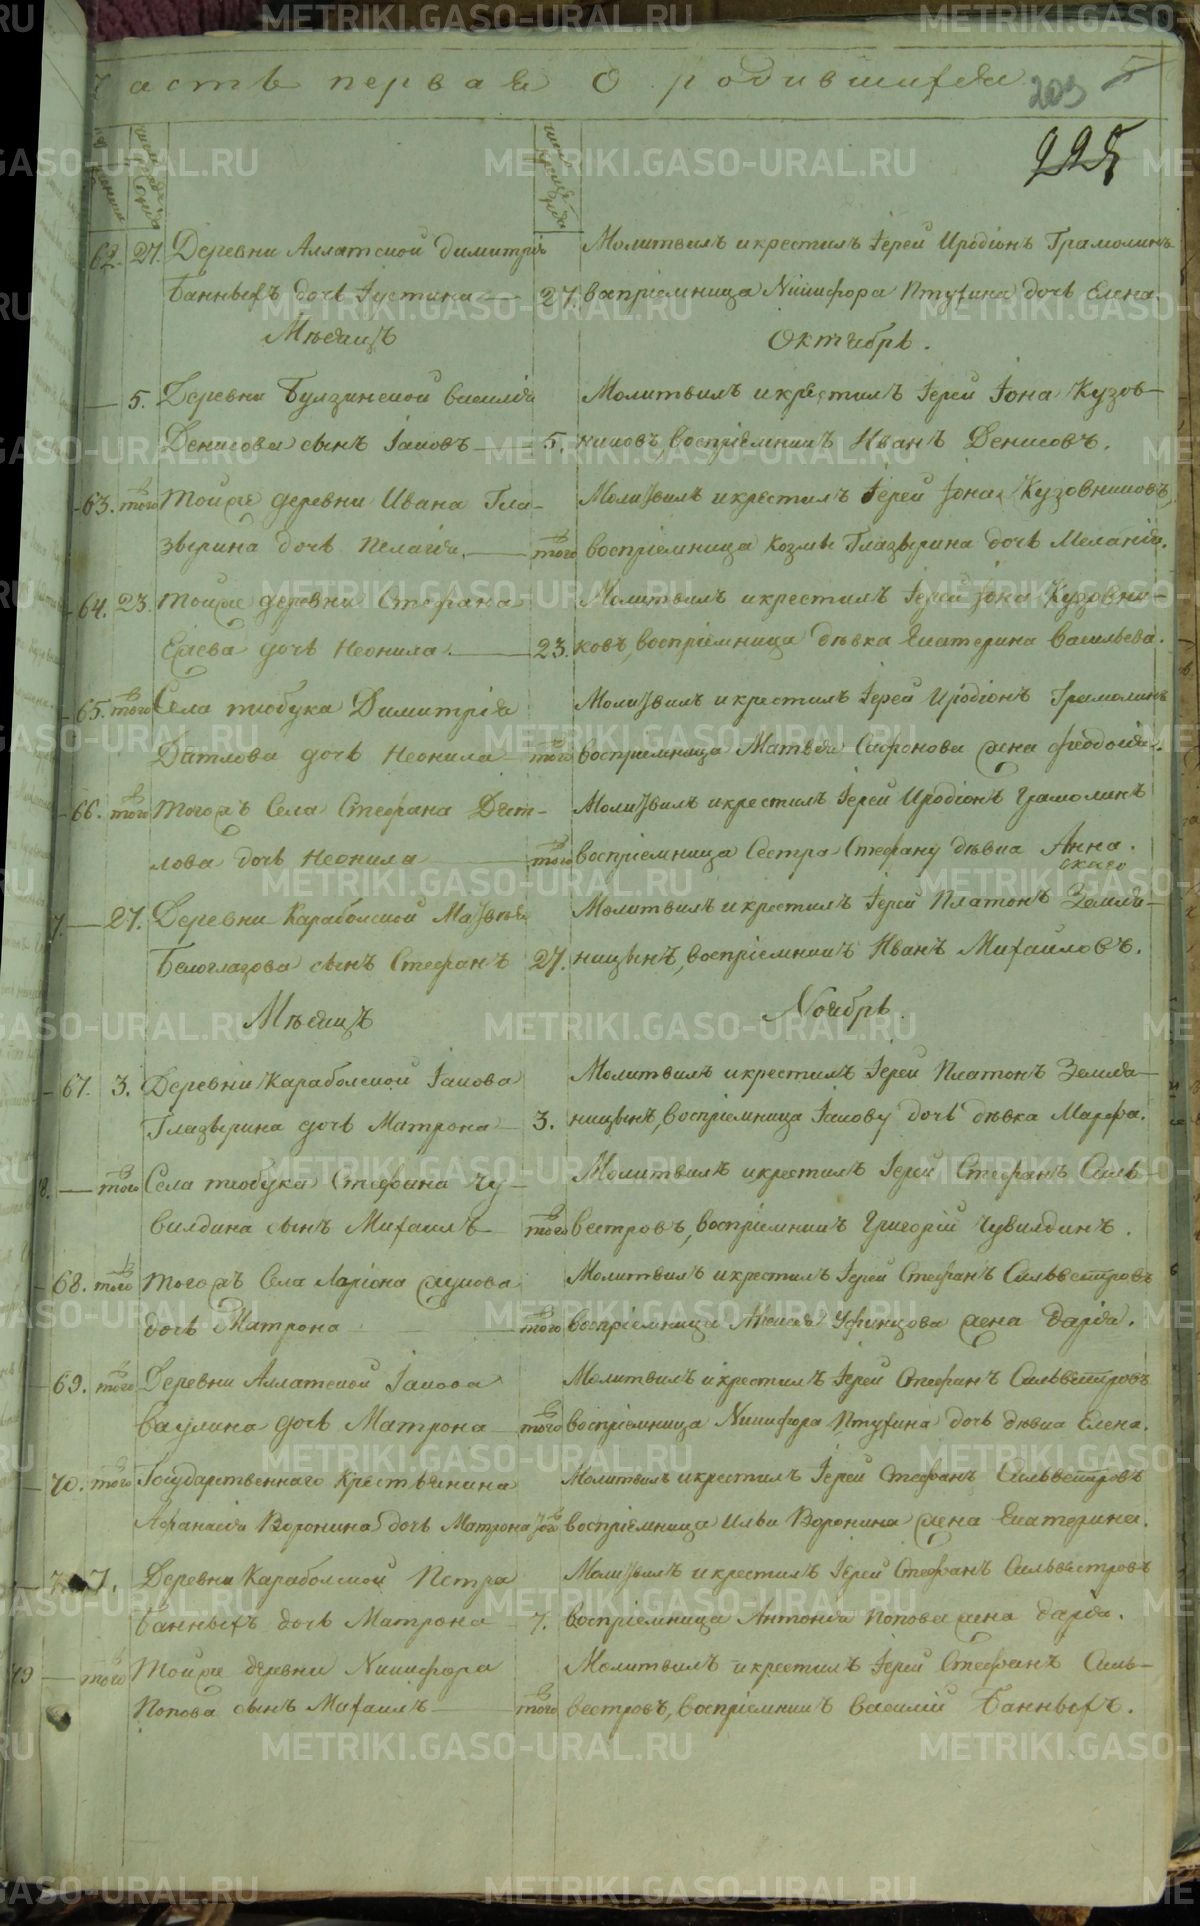 асть первая О родившихся
203
225
62. 27. Деревни Аллатской Димитрія Молитвилъ и крестилъ Іерей Иродіонъ Грамолинъ
Банныхъ дочь Іустина 27. воспріемница Никифора Птухина дочь Елена.
Мѣсяцъ Октябрь.
5. Деревни Булзинской Василія Молитвилъ и крестилъ Іерей Іона Кузов-
Денисова сынъ Іаковъ 5. никовъ, воспріемникъ Иванъ Денисовъ.
63. того Тойже деревни Ивана Гла- Молитвилъ и крестилъ Іерей Іона Кузовниковъ,
звѣрина дочь Пелагія. того воспріемница Козмы Глазѣрина дочь Меланія.
64. 23. Тойже деревни Стефана Молитвилъ и крестилъ Іерей Іона Кузовни-
Ежева дочь Неонила. 23. ковъ, воспріемница дѣвка Екатерина Васильева.
65. того Села Тюбука Димитрія Молитвилъ и крестилъ Іерей Иродіонъ Грамолинъ
Дятлова дочь Неонила того воспріемница Матвѣя Сафонова жена Феодосія.
66. того Тогожъ Села Стефана Дят- Молитвилъ и крестилъ Іерей Иродіонъ Грамолинъ
лова дочь Неонила того воспріемница Сестра Стефану дѣвка Анна.
7. 27. Деревни Караболской Матвѣя Молитвилъ и крестилъ Іерей Платонъ Земля-
Белоглазова сынъ Стефанъ 27. ницынъ, воспріемникъ Иванъ Михайловъ.
Мѣсяцъ Ноябрь.
67. 3. Деревни Караболской Іакова Молитвилъ и крестилъ Іерей Платонъ Земля-
Глазѣрина дочь Матрона 3. ницынъ, воспріемница Іакову дочь дѣвка Марфа.
8. того Села Тюбука Стефана Чу- Молитвилъ и крестилъ Іерей Стефанъ Силь-
вилдина сынъ Михаилъ того вестровъ, воспріемникъ Григорій Чувилдинъ.
68. того Тогожъ Села Ларіона Жукова Молитвилъ и крестилъ Іерей Стефанъ Сильвестровъ
дочь Матрона того воспріемница Уфинцова жена Дарія.
69. того Деревни Аллатской Іакова Молитвилъ и крестилъ Іерей Стефанъ Сильвестровъ
Ваулина дочь Матрона того воспріемница Никифора Птухина дочь дѣвка Елена.
70. того Государственнаго Крестьянина Молитвилъ и крестилъ Іерей Стефанъ Сильвестровъ
Афанасія Воронина дочь Матрона того воспріемница Ильи Воронина жена Екатерина.
7. Деревни Караболской Петра Молитвилъ и крестилъ Іерей Стефанъ Сильвестровъ
Банныхъ дочь Матрона 7. воспріемница Антонія Попова жена Дарія.
того Тойже деревни Никифора Молитвилъ и крестилъ Іерей Стефанъ Силь-
Попова сынъ Михаилъ того вестровъ, воспріемникъ Василій Банныхъ.
METRIKI.GASO-URAL.RU